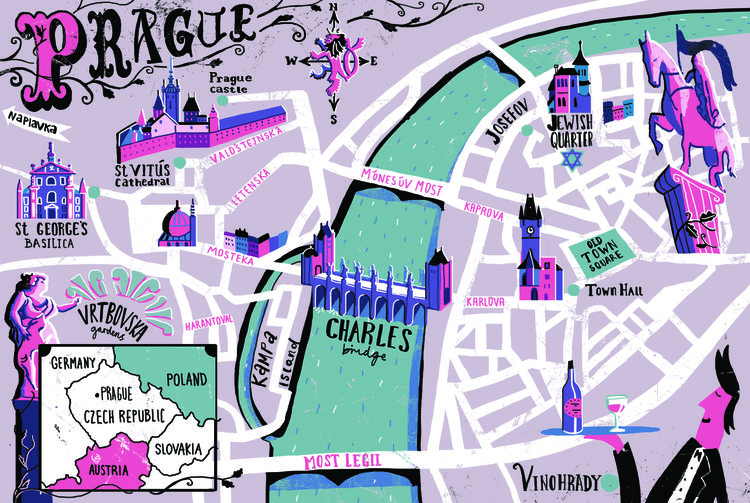 PRAGUE
N
W E
S
Prague
castle
NAPLAVKA
St VITUS
Cathedral
VALDSTEJNSKÁ
LETENSKA
St GEORGE'S
BASILICA
MOSTEKA
MÓNESŮV MOST
KAPROVA
JOSEFOV
JEWISH
QUARTER
OLD
TOWN
SQUARE
TOWN HALL
KARLOVA
VRTBOVSKA
gardens
HARANTOVAL
KAMPA
ISLAND
CHARLES
bridge
GERMANY
POLAND
PRAGUE
CZECH REPUBLIC
SLOVAKIA
AUSTRIA
MOST LEGII
VINOHRADY